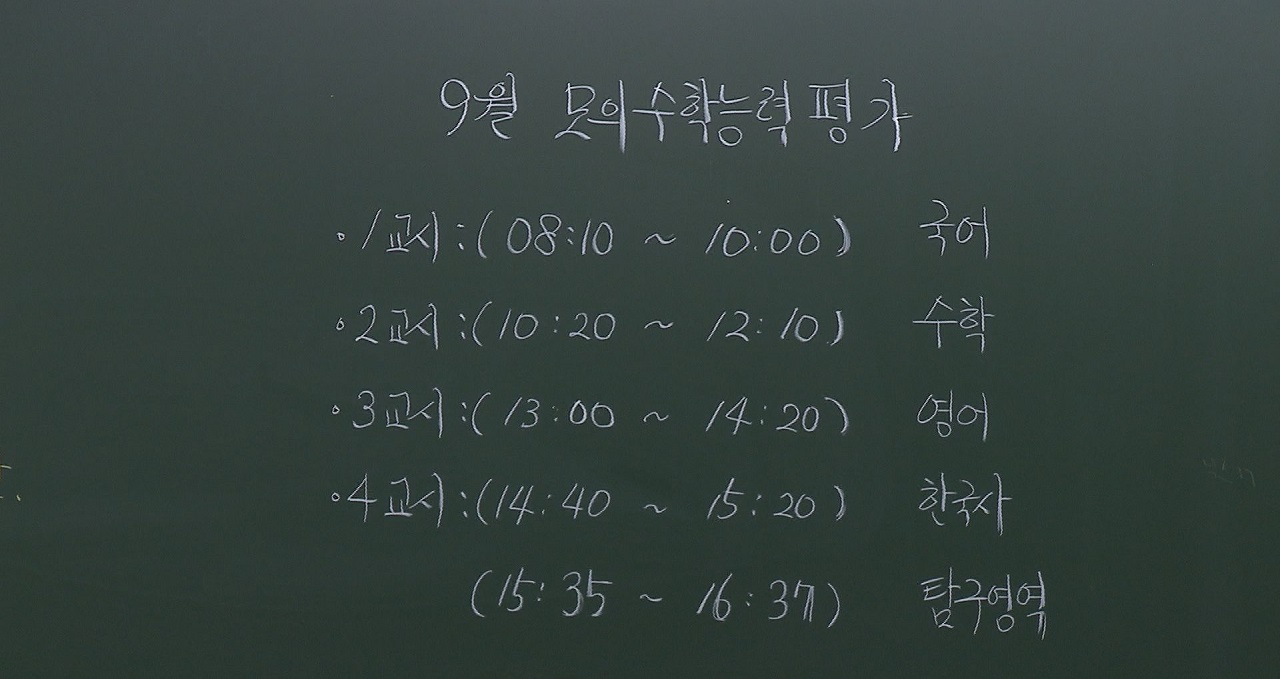 9월 모의수학능력평가
·1교시:(08:10 ~ 10:00) 국어
·2교시:(10:20 ~ 12:10) 수학
·3교시:(13:00 ~ 14:20) 영어
·4교시:(14:40 ~ 15:20) 한국사
(15:35 ~ 16:37) 탐구영역